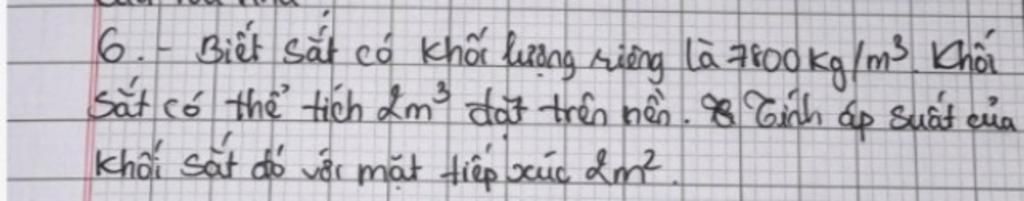 6. - Biết sắt có khối lượng riêng là 7800kg/m³. Khối
sắt có thể tích 2m³ đặt trên nền. Tính áp suất của
khối sắt đó với mặt tiếp xúc 2m².